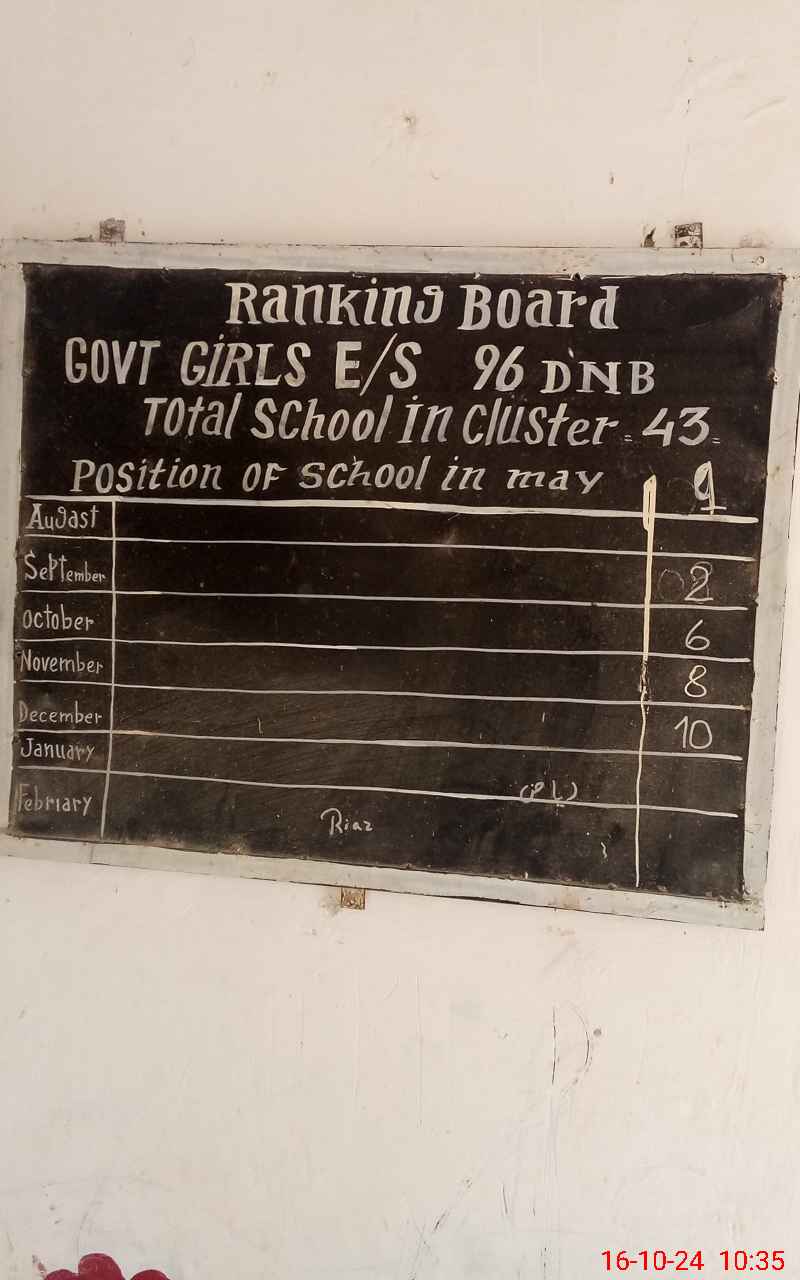 Ranking Board
GOVT GIRLS E/S 96 DNB
Total School in Cluster = 43=
Position of School in may
Augast
September 2
October 6
November 8
December 10
January
Febriary
ریاض
Riaz
16-10-24 10:35